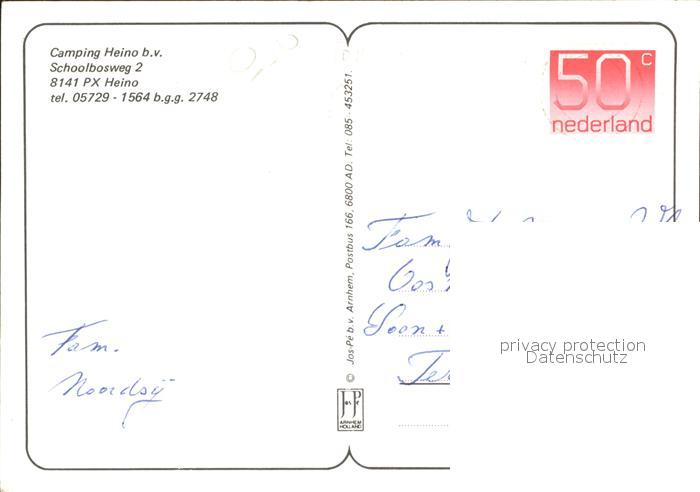 Camping Heino b.v.
Schoolbosweg 2
8141 PX Heino
tel. 05729 - 1564 b.g.g. 2748
Fam.
Noordsij
© Jos-Pé b.v. Arnhem, Postbus 166, 6800 AD. Tel. 085 - 453251.
Jos Pé
ARNHEM
HOLLAND
50 C
nederland
Fam.
privacy protection
Datenschutz